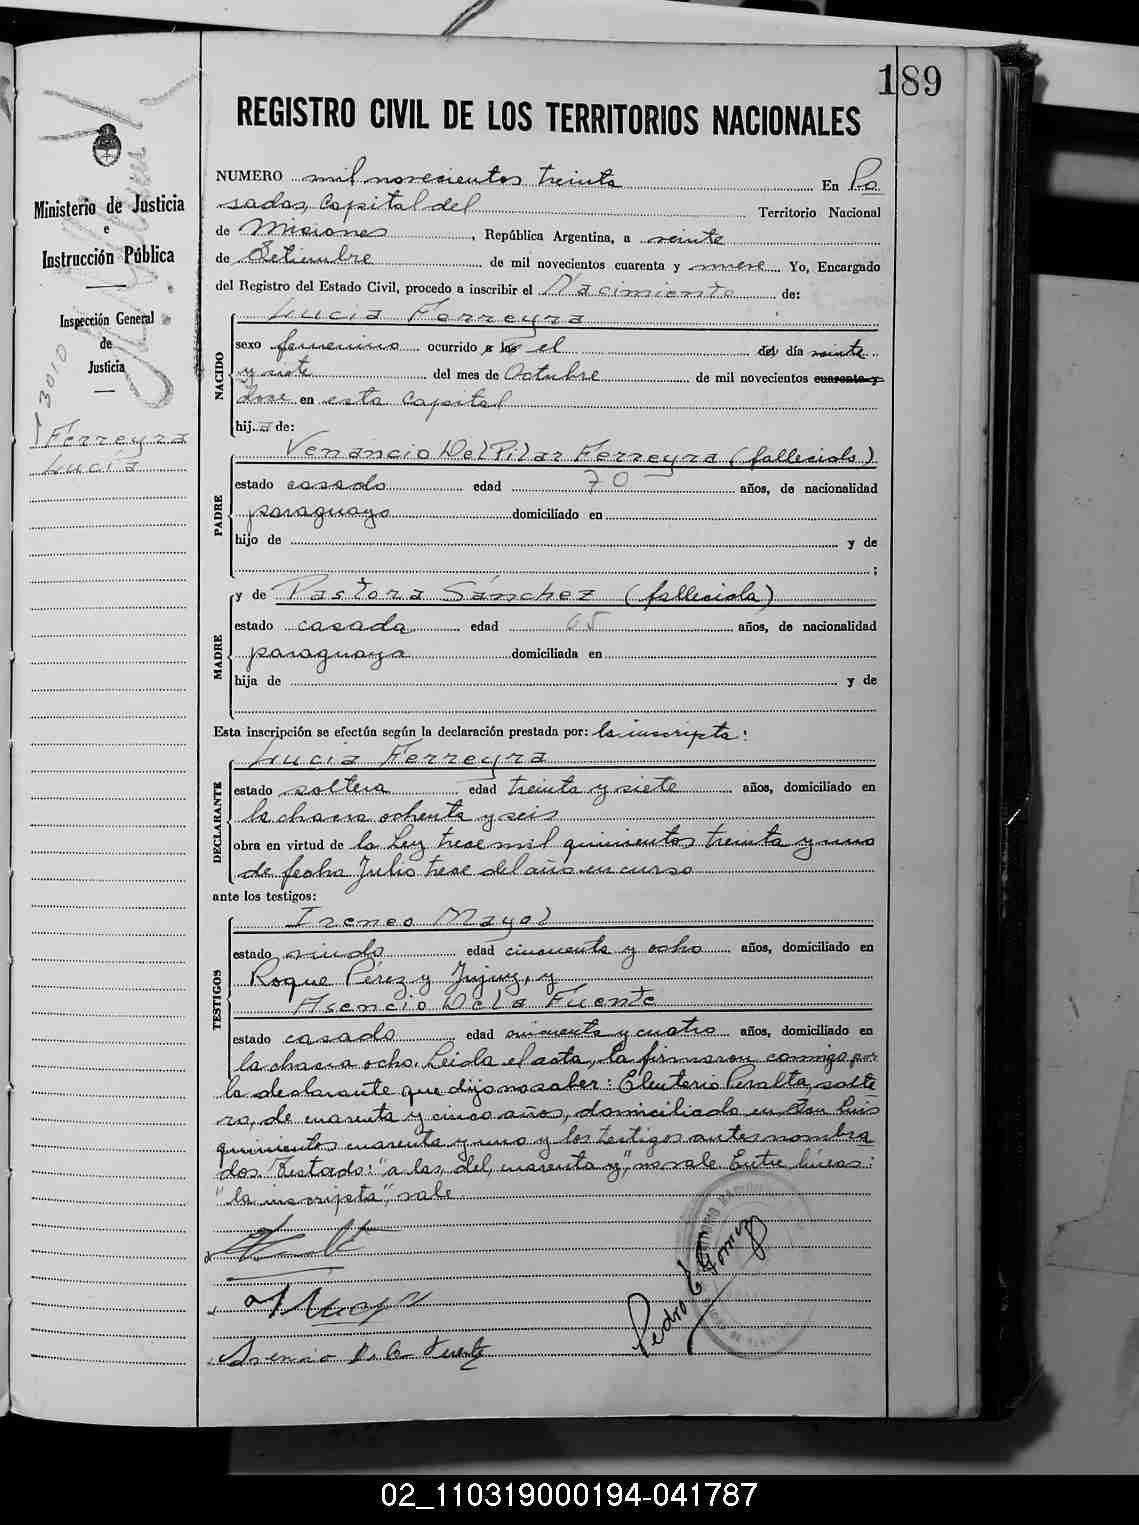 189
REGISTRO CIVIL DE LOS TERRITORIOS NACIONALES
Ministerio de Justicia
e
Instrucción Pública
Inspección General
de
Justicia
Ferreyra
Lucía
NUMERO mil novecientos treinta En Po
sadas, Capital del Territorio Nacional
de Misiones, República Argentina, a veinte
de Setiembre de mil novecientos cuarenta y nueve Yo, Encargado
del Registro del Estado Civil, procedo a inscribir el Nacimiento de:
NACIDO
Lucia Ferreyra
sexo femenino ocurrido a las el del día veinte
y siete del mes de Octubre de mil novecientos cuarenta y
doce en esta Capital
hija de:
PADRE
Venancio Del Pilar Ferreyra (fallecido)
estado casado edad 70 años, de nacionalidad
paraguayo domiciliado en
hijo de y de
;
MADRE
y de Pastora Sánchez (fallecida)
estado casada edad 65 años, de nacionalidad
paraguaya domiciliada en
hija de y de
Esta inscripción se efectúa según la declaración prestada por: la inscripta:
DECLARANTE
Lucia Ferreyra
estado soltera edad treinta y siete años, domiciliado en
la chacra ochenta y seis
obra en virtud de la Ley trece mil quinientos treinta y uno
de fecha Julio trece del año en curso
ante los testigos:
TESTIGOS
Ireneo Mayol
estado viudo edad cincuenta y ocho años, domiciliado en
Roque Pérez y Jujuy, y
Asencio De La Fuente
estado casado edad cincuenta y cuatro años, domiciliado en
la chacra ocho. Leida el acta, la firmaron conmigo por
la declarante que dijo no saber: Eleuterio Peralta, solte
ro, de cuarenta y cinco años, domiciliado en San Luis
quinientos cuarenta y uno y los testigos antes nombra
dos. Testado: "a las, del, cuarenta y", no vale. Entre líneas:
"la inscripta", vale
Asencio De la Fuente
Pedro E Gomez
02_110319000194-041787